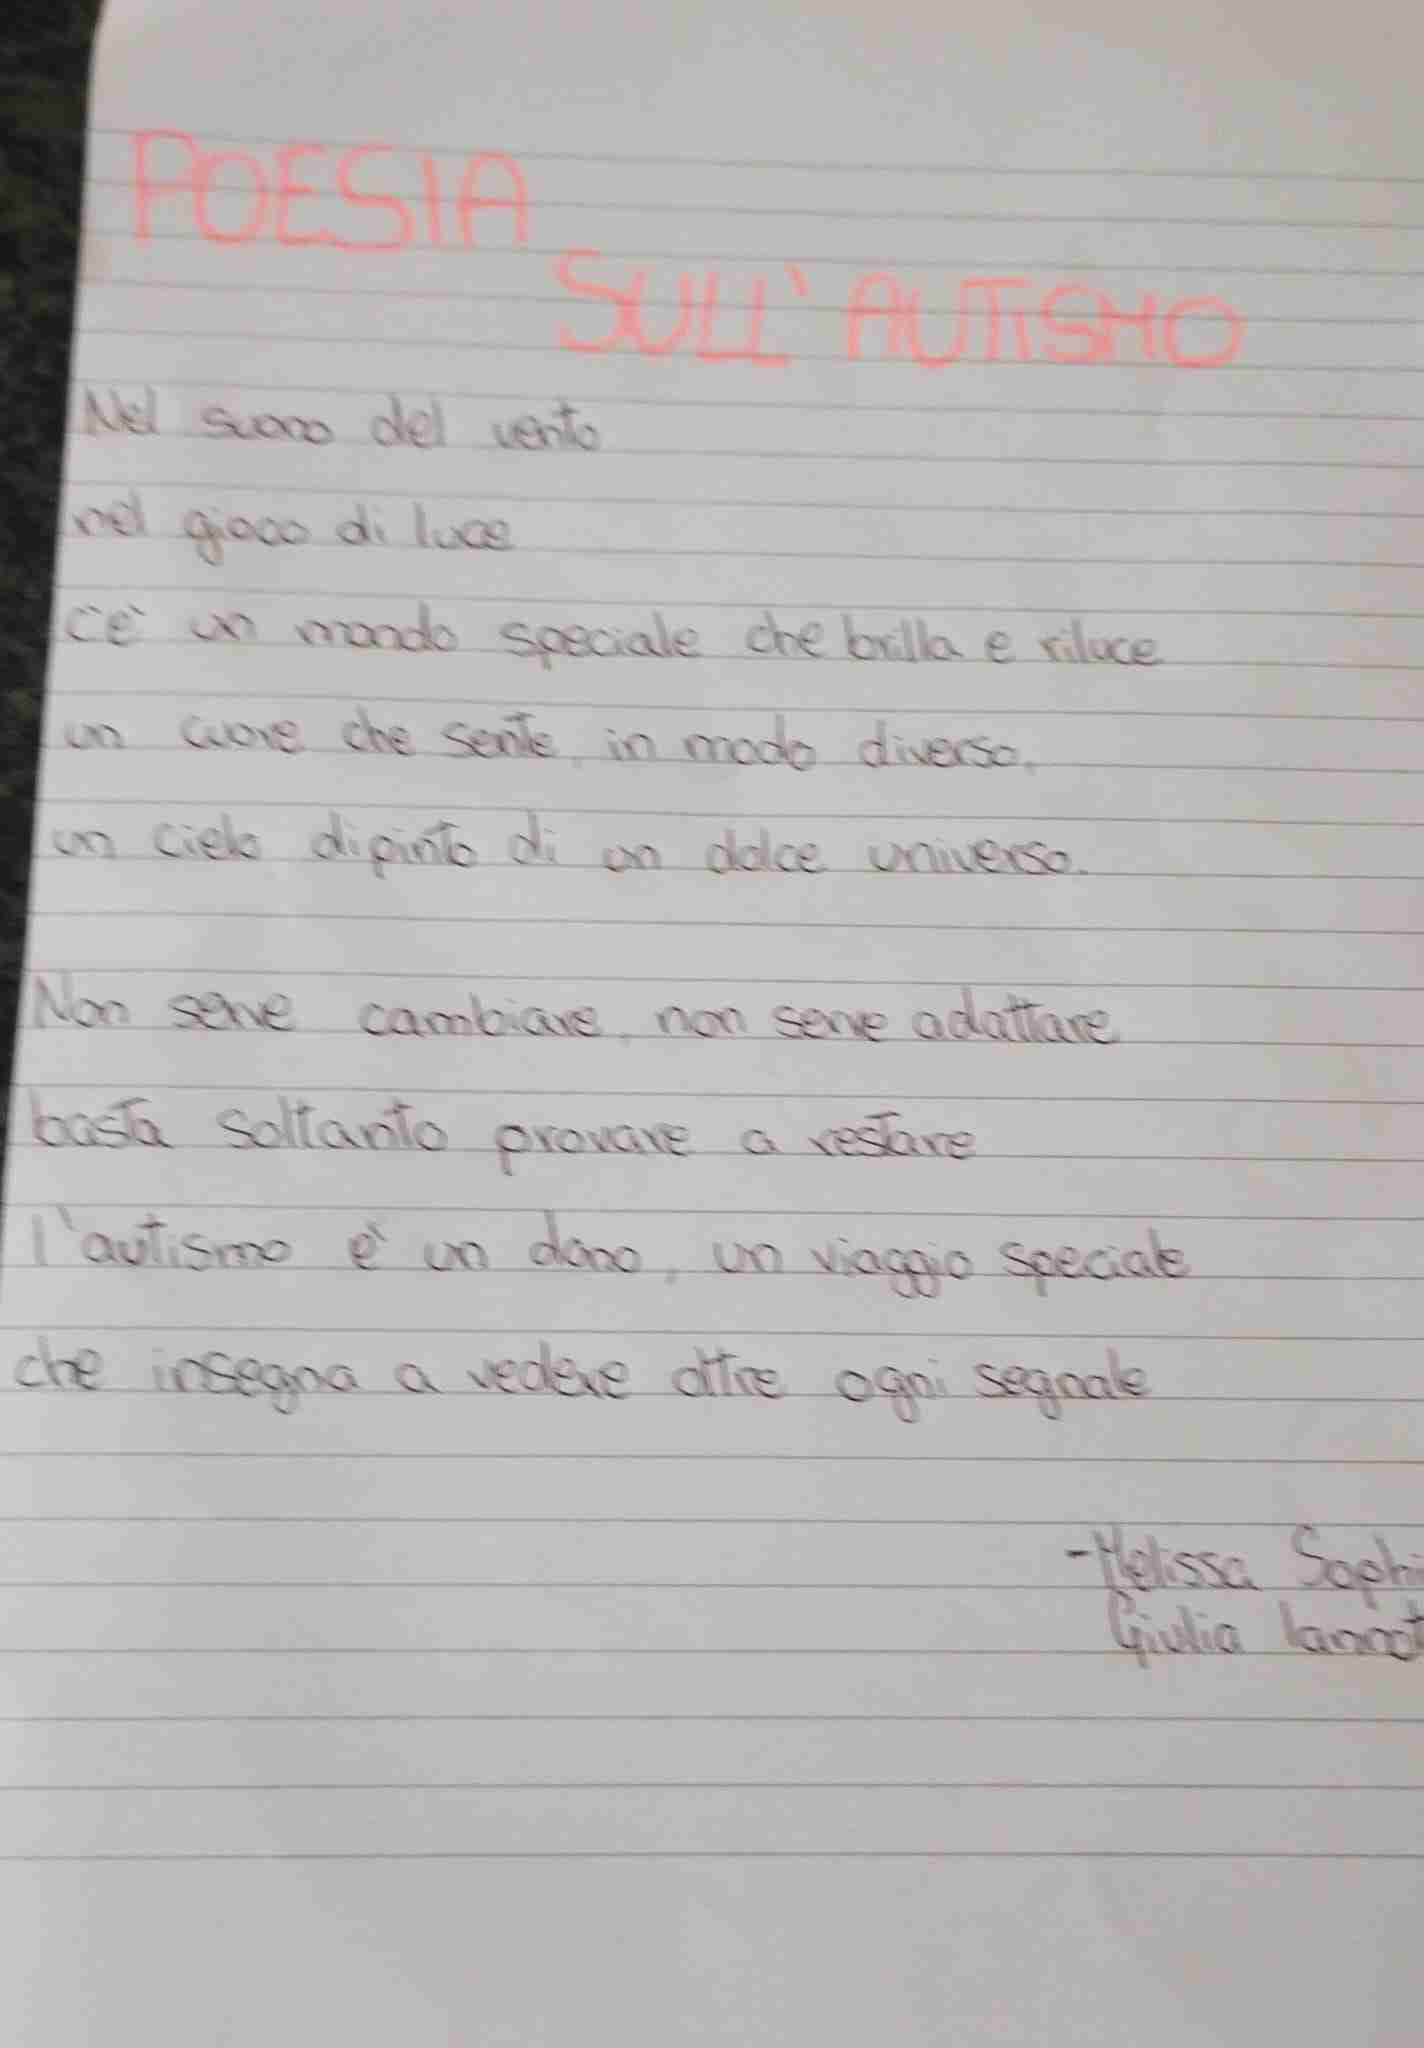 POESIA
SULL'AUTISMO
Nel suono del vento
nel gioco di luce
c'è un mondo speciale che brilla e riluce
un cuore che sente, in modo diverso,
un cielo dipinto di un dolce universo.
Non serve cambiare, non serve adattare
basta soltanto provare a restare
l'autismo è un dono, un viaggio speciale
che insegna a vedere oltre ogni segnale
-Melissa
Giulia